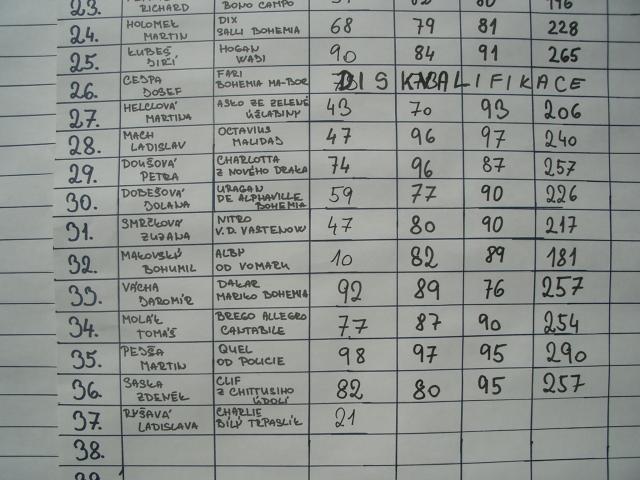 23. RICHARD BONO CAMPO
24. HOLOMEK DIX 68 79 81 228
MARTIN SALLI BOHEMIA
25. ĽUBEŠ HOGAN 90 84 91 265
JIŘÍ WADI
26. CESPA FARI DISKVALIFIKACE
JOSEF BOHEMIA MA-BOR
27. HELCLOVÁ ASKO ZE ZELENÉ 43 70 93 206
MARTINA ÚŽLABINY
28. MACH OCTAVIUS 47 96 97 240
LADISLAV MALIDAS
29. DOUŠOVÁ CHARLOTTA 74 96 87 257
PETRA Z NOVÉHO DRAKA
30. DOBEŠOVÁ URAGAN 59 77 90 226
JOLANA DE ALPHAVILLE
BOHEMIA
31. SMRČKOVÁ NITRO 47 80 90 217
ZUZANA V.D. VASTENOW
32. MAKOVSKÝ ALBY 10 82 89 181
BOHUMIL OD VOMARK
33. VÁCHA DAKAR 92 89 76 257
JAROMÍR MARIKO BOHEMIA
34. MOLÁK BREGO ALLEGRO 77 87 90 254
TOMÁŠ CANTABILE
35. PEJŠA QUEL 98 97 95 290
MARTIN OD POLICIE
36. SASKA CLIF 82 80 95 257
ZDENĚK Z CHITTUSIHO
ÚDOLÍ
37. RYŠAVÁ CHARLIE 21
LADISLAVA BÍLÝ TRPASLÍK
38.